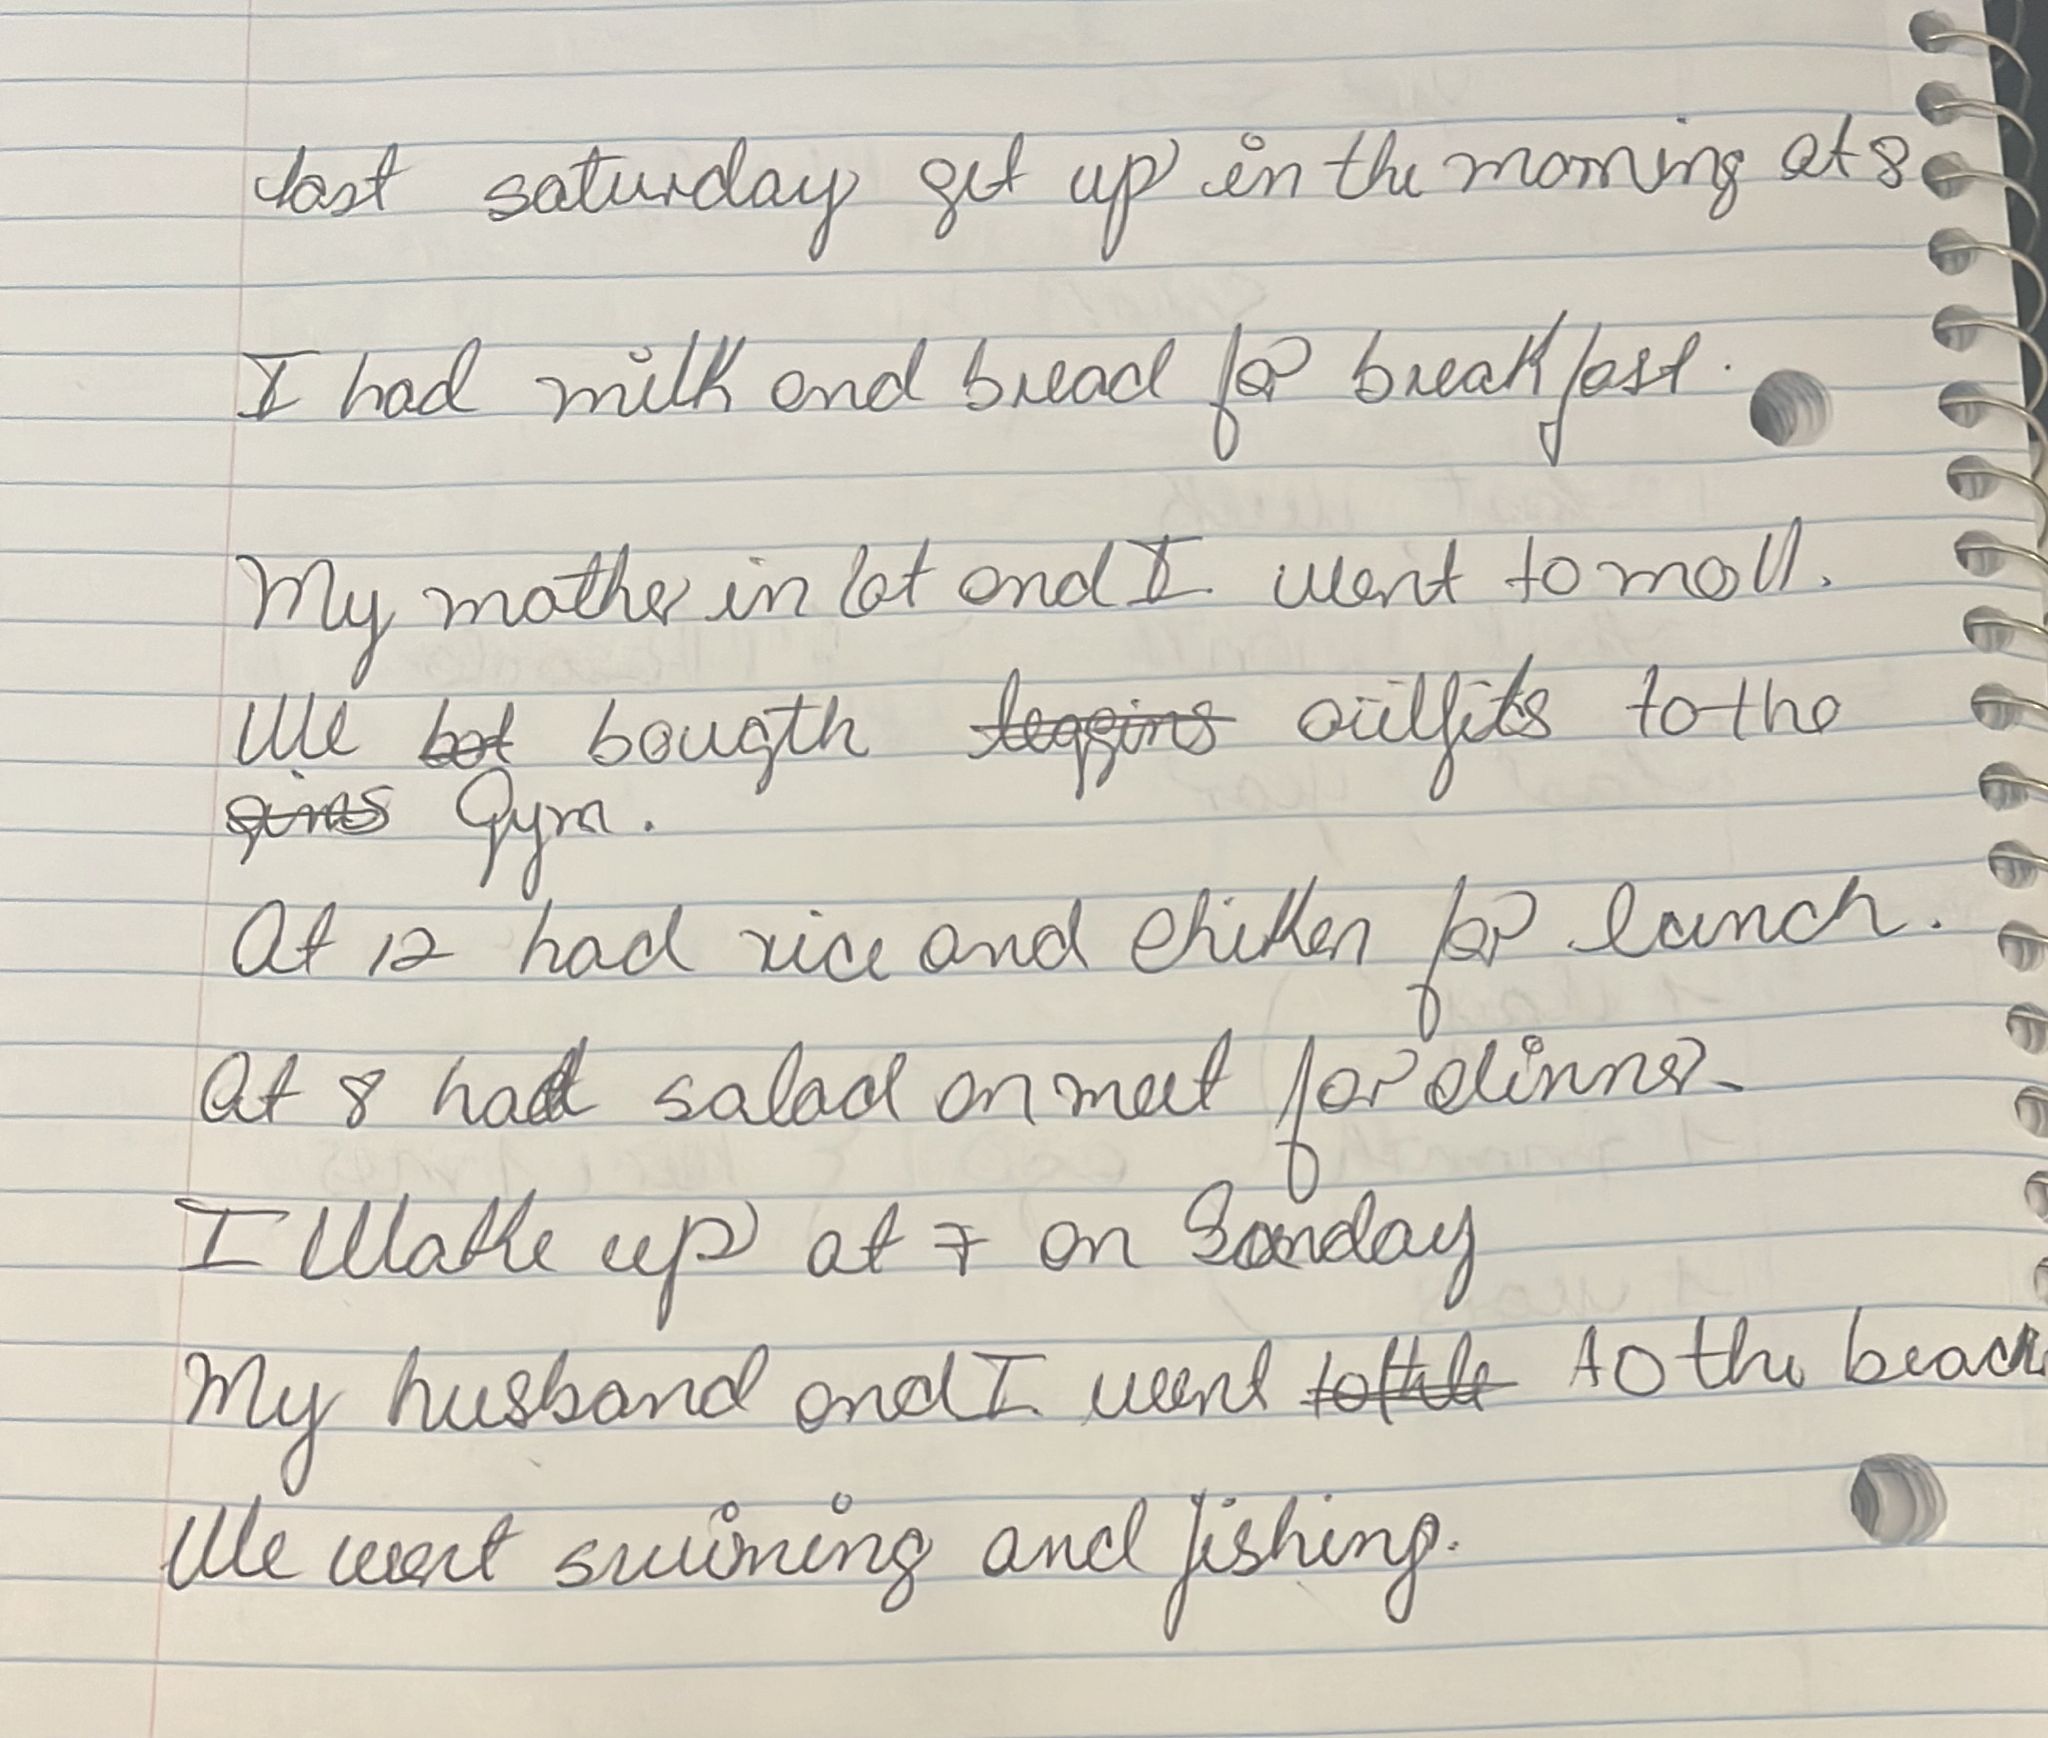 last saturday get up in the morning at 8
I had milk and bread for breakfast.
My mother in lot and I went to moll.
We bot bougth leggins outfits to the
gims Gym.
At 12 had rice and chiken for lunch.
At 8 had salad on meet for dinner.
I Wake up at 7 on Sanday
My husband and I went to the beach
We went swiming and fishing.